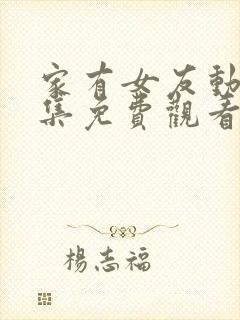 家有女友動
集免費觀看
楊志福